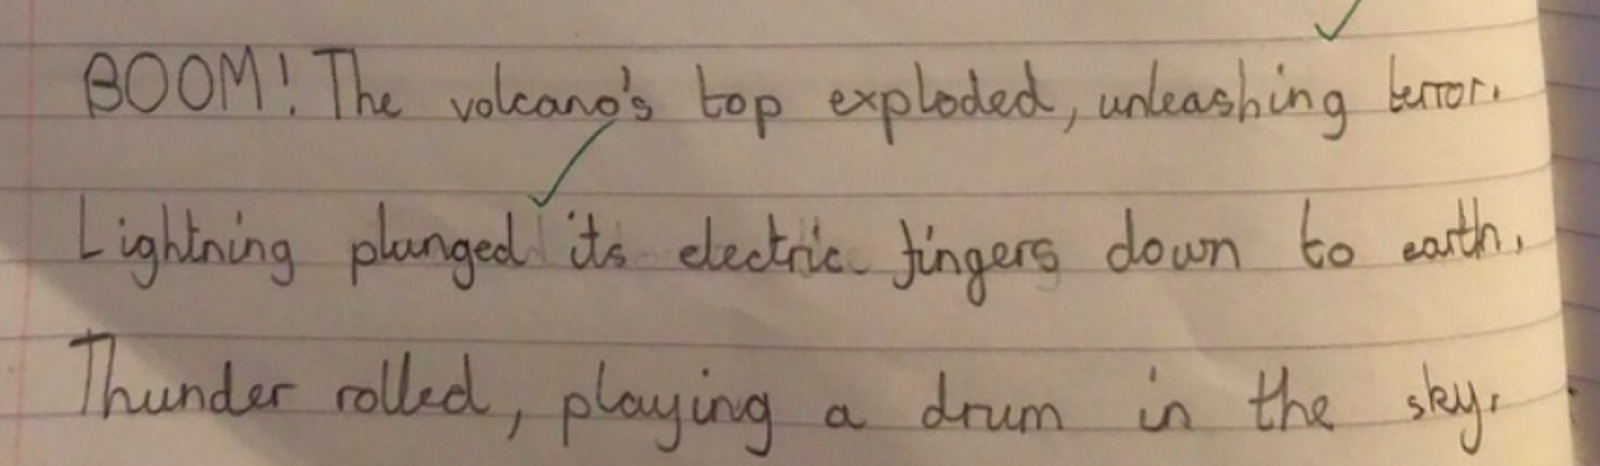 BOOM! The volcano's top exploded, unleashing terror.
Lightning plunged its electric fingers down to earth.
Thunder rolled, playing a drum in the sky.